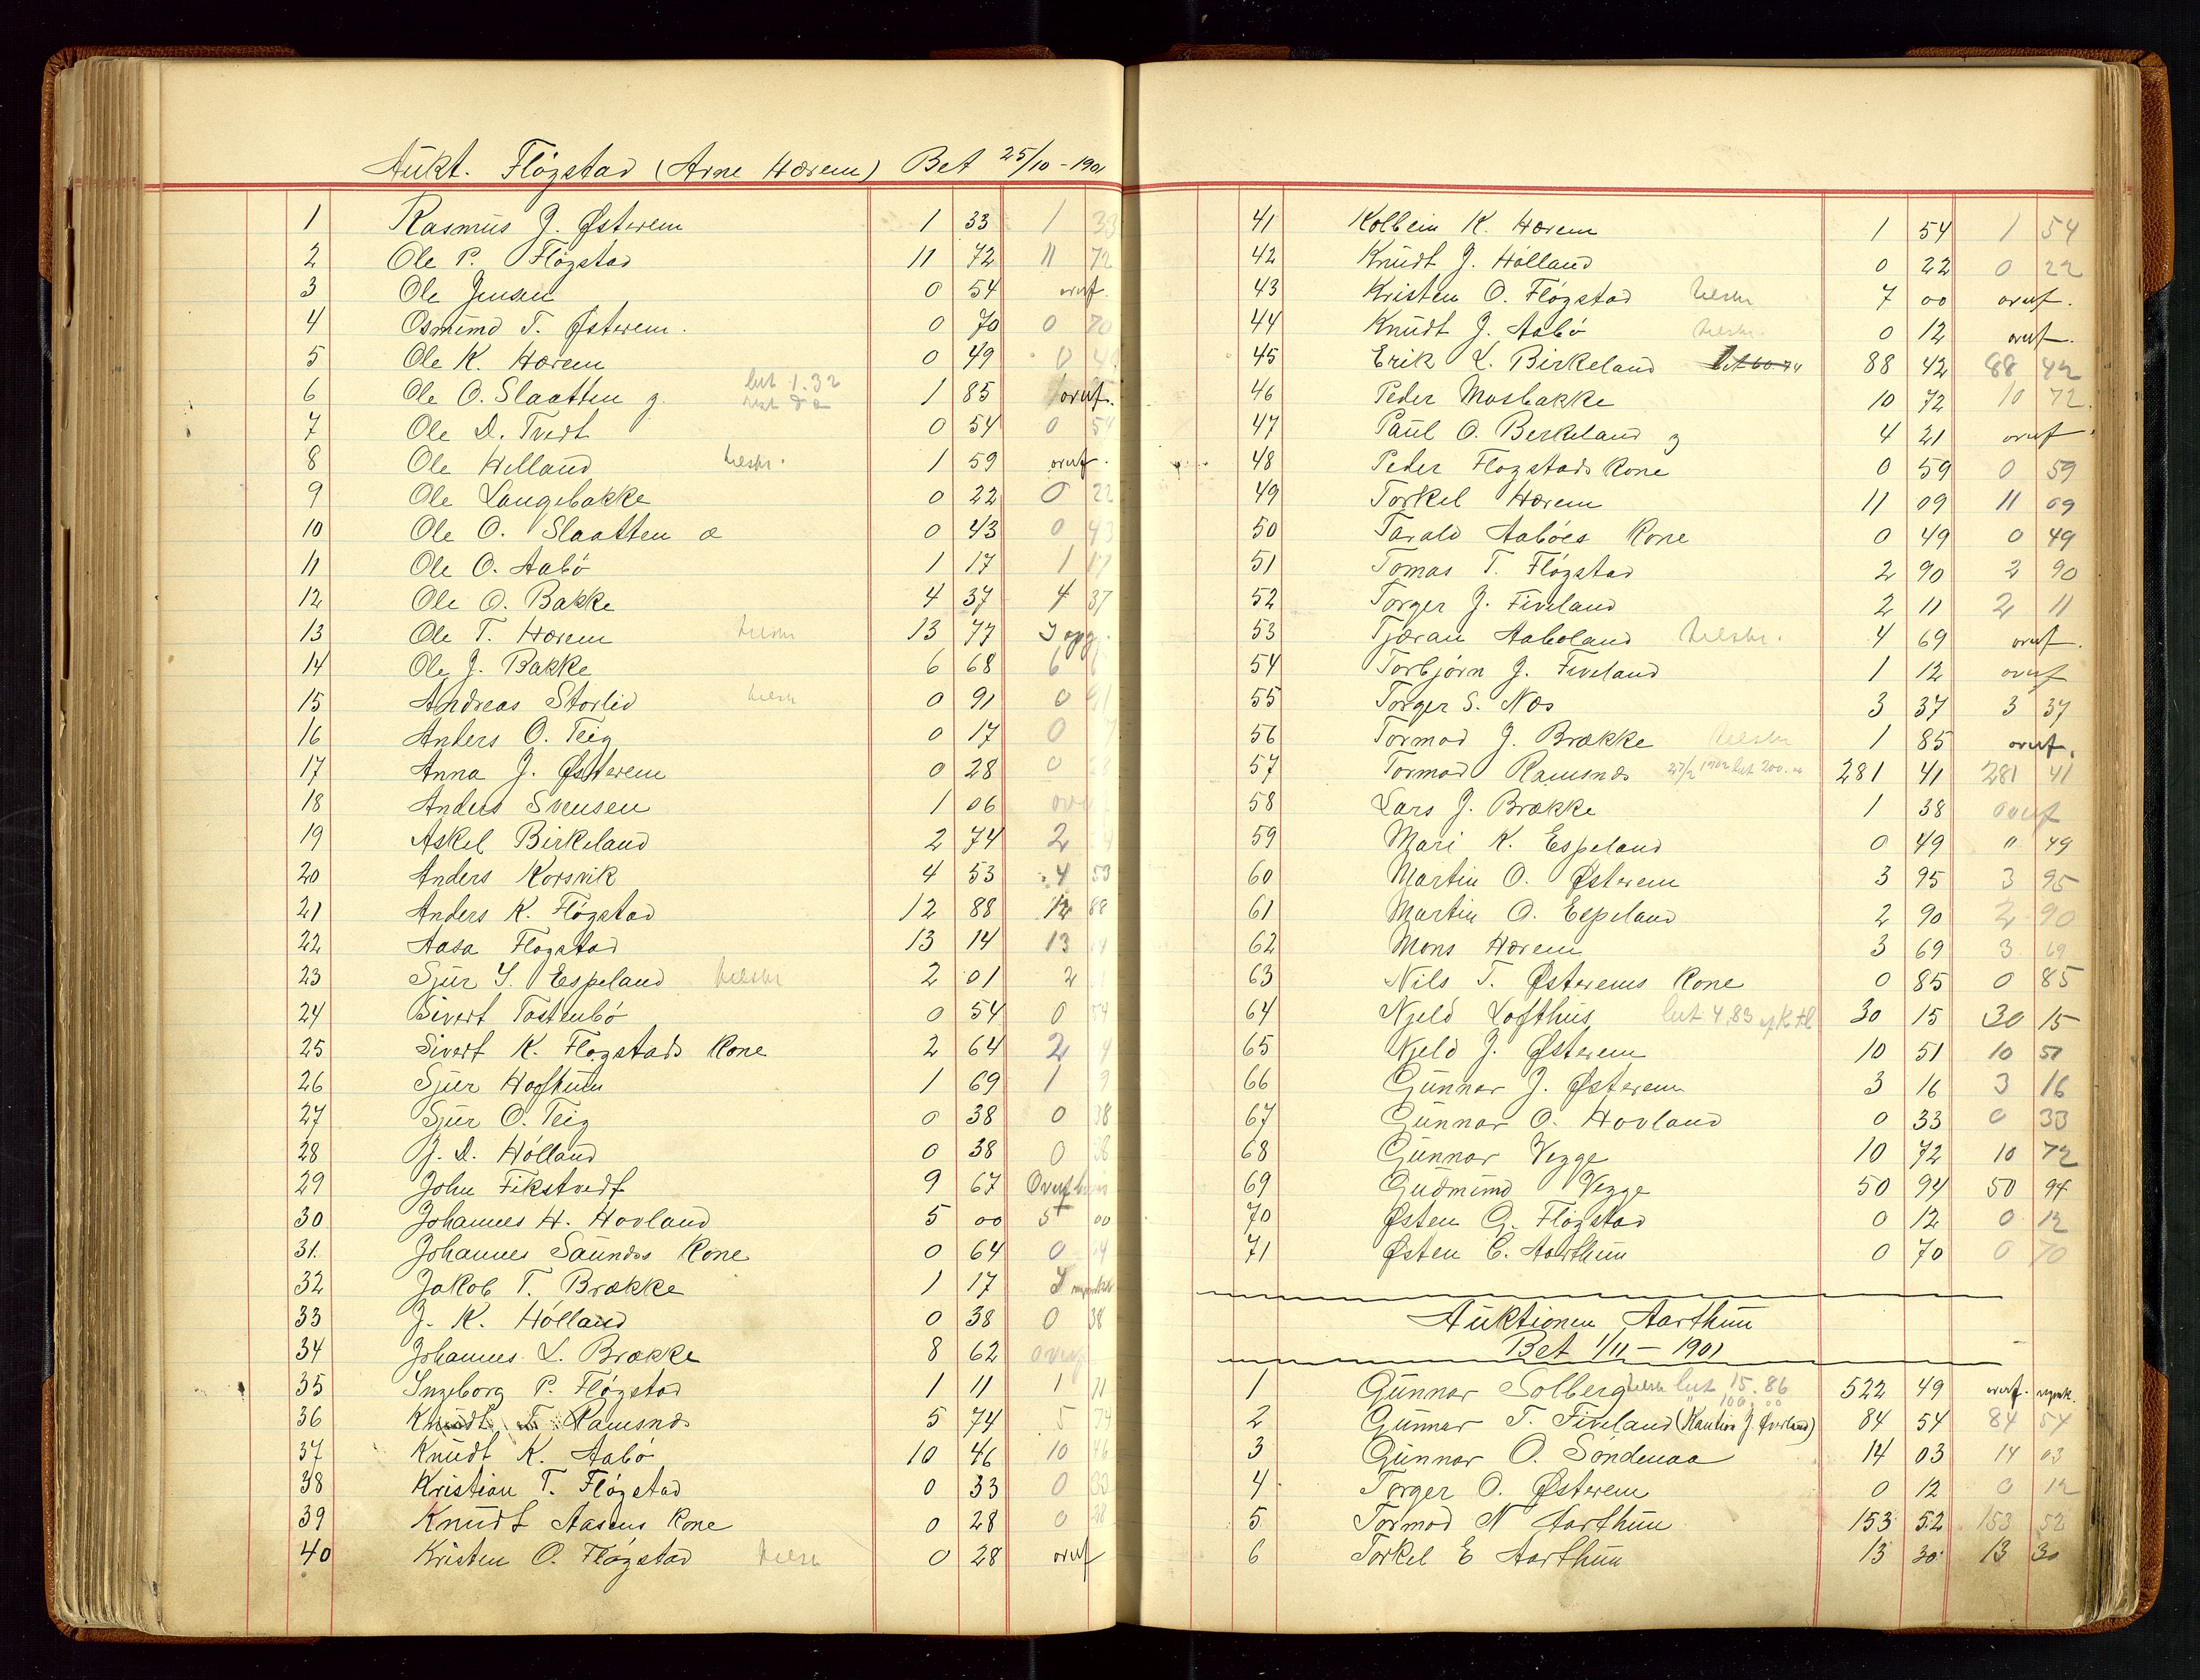 Aukt. Fløgstad (Arne Hærem) Bet 25/10 - 1901
1 Rasmus J. Østerem 1 33 1 33
2 Ole P. Fløgstad 11 72 11 72
3 Ole Jensen 0 54 overf.
4 Osmund T. Østerem. 0 70 0 70
5 Ole K. Hærem 0 49 0 49
6 Ole O. Slaatten y. 1 85 overf.
7 Ole D. Tvedt 0 54 0 54
8 Ole Helland 1 59 overf.
9 Ole Langebakke 0 22 0 22
10 Ole O. Slaatten æ 0 43 0 43
11 Ole O. Aabø 1 17 1 17
12 Ole O. Bakke 4 37 4 37
13 Ole T. Hærem 13 77
14 Ole J. Bakke 6 68 6
15 Andreas Storlid 0 91 0 91
16 Anders O. Teig 0 17 0 7
17 Anna J. Østerem 0 28 0 28
18 Anders Svensen 1 06
19 Askel Birkeland 2 74 2 4
20 Anders Korsvik 4 53 4 53
21 Anders K. Fløgstad 12 88 12 88
22 Aasa Fløgstad 13 14 13 14
23 Sjur S. Espeland 2 01 2 1
24 Sivert Tostenbø 0 54 0 54
25 Sivert K. Fløgstads Kone 2 64 2 4
26 Sjur Hogthun 1 69 1 9
27 Sjur O. Teig 0 38 0 38
28 J. D. Hølland 0 38 0 38
29 John Fikstvedt 9 67
30 Johannes H. Hovland 5 00 5 00
31. Johannes Saundøs Kone 0 64 0 64
32 Jakob T. Brække 1 17
33 J. K. Hølland 0 38 0 38
34 Johannes L. Brække 8 62 overf
35 Ingeborg P. Fløgstad 1 11 1 11
36 Knudt T. Ramsnæs 5 74 5 74
37 Knudt K. Aabø 10 46 10 46
38 Kristian T. Fløgstad 0 33 0 33
39 Knudt Aasens Kone 0 28 0 28
40 Kristen O. Fløgstad 0 28 overf
41 Kolbein K. Hærem 1 54 1 54
42 Knudt J. Hølland 0 22 0 22
43 Kristen O. Fløgstad 7 00 overf.
44 Knudt J. Aabø 0 12 overf.
45 Erik L. Birkeland 88 42 88 42
46 Peder Mosbakke 10 72 10 72.
47 Paul O. Berkeland y 4 21 overf
48 Peder Flogstads Kone 0 59 0 59
49 Torkel Hærem 11 09 11 09
50 Tarald Aabøes Kone 0 49 0 49
51 Tomas T. Fløgstad 2 90 2 90
52 Torger J. Fiveland 2 11 2 11
53 Tjæran Aaboland 4 69 overf.
54 Torbjørn J. Fiveland 1 12 overf
55 Torger S. Næs 3 37 3 37
56 Tormod J. Brække 1 85 overf.
57 Tormod Ramsnæs 27/2 1902 bet 200.00 281 41 281 41
58 Lars J. Brække 1 38 overf
59 Mari K. Espeland 0 49 " 49
60 Martin O. Østerem 3 95 3 95
61 Martin O. Espeland 2 90 2 90
62 Mons Hærem 3 69 3 69
63 Nils T. Østerems Kone 0 85 0 85
64 Njeld Lofthus bet 4,83 30 15 30 15
65 Njeld J. Østerem 10 51 10 51
66 Gunnar J. Østerem 3 16 3 16
67 Gunnar O. Hovland 0 33 0 33
68 Gunnar Vegge 10 72 10 72
69 Gudmund Vegge 50 94 50 94
70 Østen G. Fløgstad 0 12 0 12
71 Østen E. Aarthun 0 70 0 70
Auktionen Aarthun
Bet 1/11 - 1901
1 Gunnar Solberg bet 15.86 522 49 overf.
" 100.00
2 Gunnar T. Fiveland (Kaution J. Øverland) 84 54 84 54
3 Gunnar O. Søndenaa 14 03 14 03
4 Torger O. Østerem 0 12 0 12
5 Tormod N Aarthun 153 52 153 52
6 Torkel E Aarthun 13 30 13 30